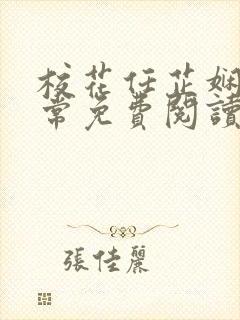 校花任芷嫻
常免費閱讀
張佳麗